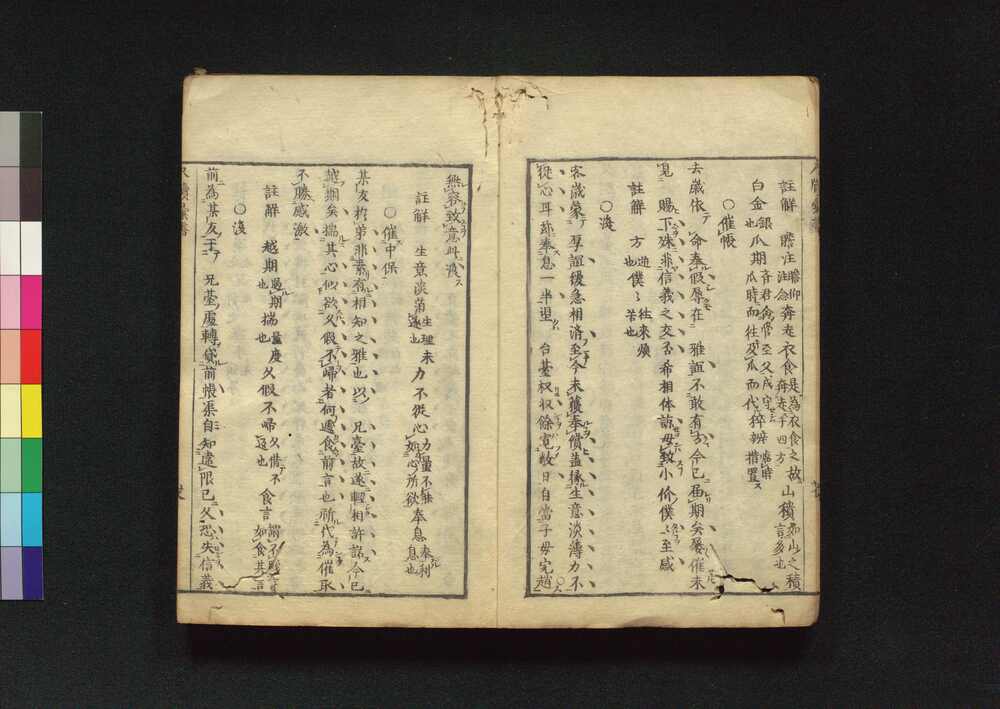 註解 瞻注瞻仰注念奔走衣食是為衣食之故奔走于四方山積如山之積言多也
白金銀也瓜期音君禽常至父戍守瓜時而往及瓜而代猝辨措置
○催帳
去歲依 命奉假辱在 雅誼不敢有今已届期矣屢催未
見 賜下殊非信義之交否希相体諒毋致小价僕僕至感
註解 方也僕僕往來煩苦也
○淺
客歲蒙 厚誼緩急相濟至今未獲奉償盖緣生意淡薄力不
從心耳茲奉息一半望 台基权收餘寬數日自當子母完趙
無容致意也淺
註解 生意淡薄生理未遂也力不從心力量不能如心所欲奉息奉利息也
○催中保
某友於弟非素有相知之雅也以 兄臺故遂輕相許諾今已
越期矣揣其心似欲久假不歸者何遽食前言也祈代為催取
不勝感激
註解 越期過期也揣量度也久假不歸久借不還也食言謂不踐言如食其言
○淺
前為某友 兄臺處轉貸前帳渠自知違限已久恐失信義